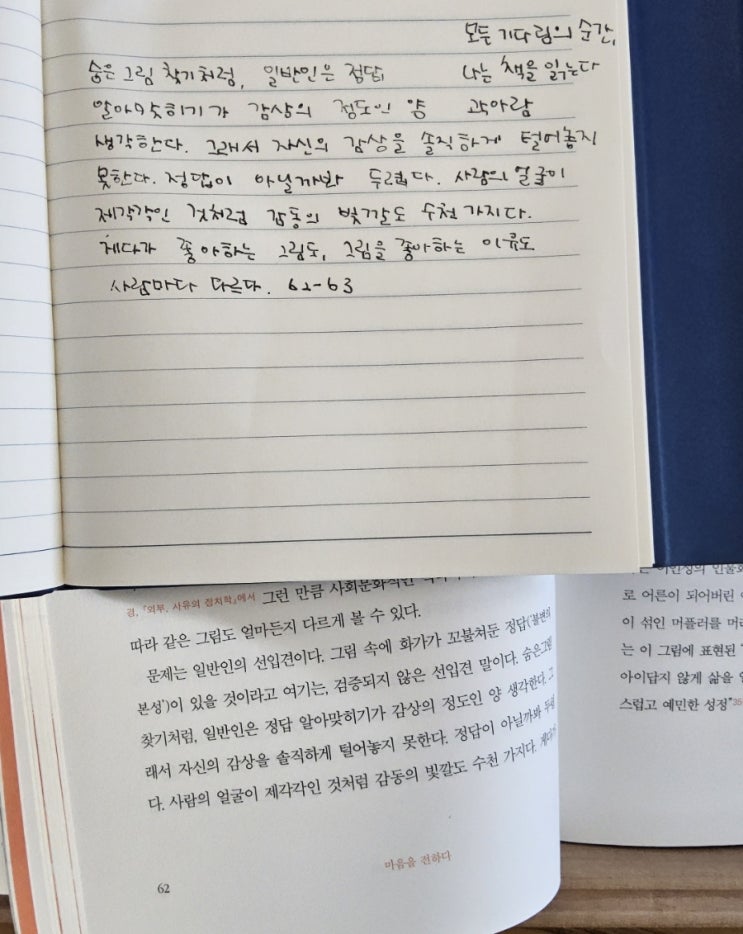 모든 기다림의 순간,
나는 책을 읽는다
곽아람
숨은 그림 찾기처럼, 일반인은 정답
알아맞히기가 감상의 정도인 양
생각한다. 그래서 자신의 감상을 솔직하게 털어놓지
못한다. 정답이 아닐까봐 두렵다. 사람의 얼굴이
제각각인 것처럼 감동의 빛깔도 수천 가지다.
게다가 좋아하는 그림도, 그림을 좋아하는 이유도
사람마다 다르다. 62-63
경, 『외부, 사유의 정치학』에서 그런 만큼 사회문화적인
따라 같은 그림도 얼마든지 다르게 볼 수 있다.
문제는 일반인의 선입견이다. 그림 속에 화가가 꼬불쳐둔 정답('불변의
본성')이 있을 것이라고 여기는, 검증되지 않은 선입견 말이다. 숨은그림
찾기처럼, 일반인은 정답 알아맞히기가 감상의 정도인 양 생각한다. 그
래서 자신의 감상을 솔직하게 털어놓지 못한다. 정답이 아닐까봐 두렵
다. 사람의 얼굴이 제각각인 것처럼 감동의 빛깔도 수천 가지다. 게다가
마음을 전하다
62
인물화
로 어른이 되어버린
이 섞인 머플러를 머리
는 이 그림에 표현된
아이답지 않게 삶을
스럽고 예민한 성정"35